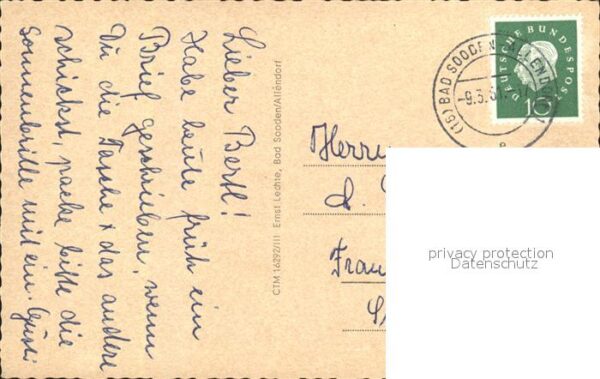 Lieber Bertl!
Habe heute früh ein
Brief geschrieben, wenn
Du die Tasche + das andere
schickst, packe bitte die
Sonnenbrille mit ein. Gusti
CTM 16292/III Ernst Lechte, Bad Sooden/Allendorf
DEUTSCHE BUNDESPOST
10
(16) BAD SOODEN-ALLEND
-9.3.
Herrn
d.
Fran
privacy protection
Datenschutz